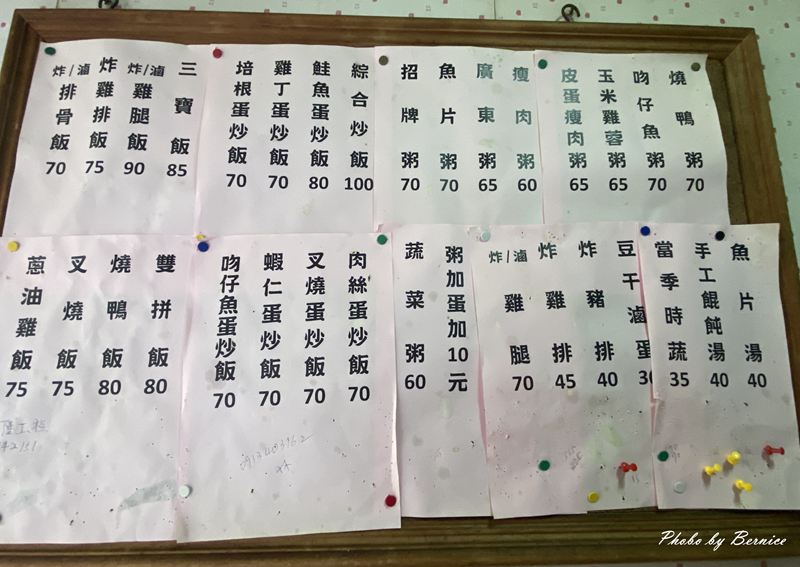 三寶飯 85
炸/滷雞腿飯 90
炸雞排飯 75
炸/滷排骨飯 70
綜合炒飯 100
鮭魚蛋炒飯 80
雞丁蛋炒飯 70
培根蛋炒飯 70
瘦肉粥 60
廣東粥 65
魚片粥 70
招牌粥 70
燒鴨粥 70
吻仔魚粥 70
玉米雞蓉粥 65
皮蛋瘦肉粥 65
雙拼飯 80
燒鴨飯 80
叉燒飯 75
蔥油雞飯 75
肉絲蛋炒飯 70
叉燒蛋炒飯 70
蝦仁蛋炒飯 70
吻仔魚蛋炒飯 70
粥加蛋加10元
蔬菜粥 60
豆干滷蛋 30
炸豬排 40
炸雞排 45
炸/滷雞腿 70
魚片湯 40
手工餛飩湯 40
當季時蔬 35
Phobo by Bernice